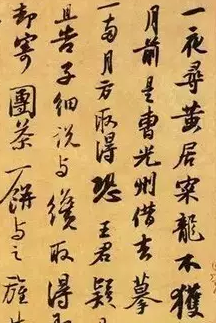 一夜尋黃居寀龍不獲
月前是曹光州借去摹
一兩月方取得恐王君疑
且告子細說與纔取得
却寄團茶一餅與之旌